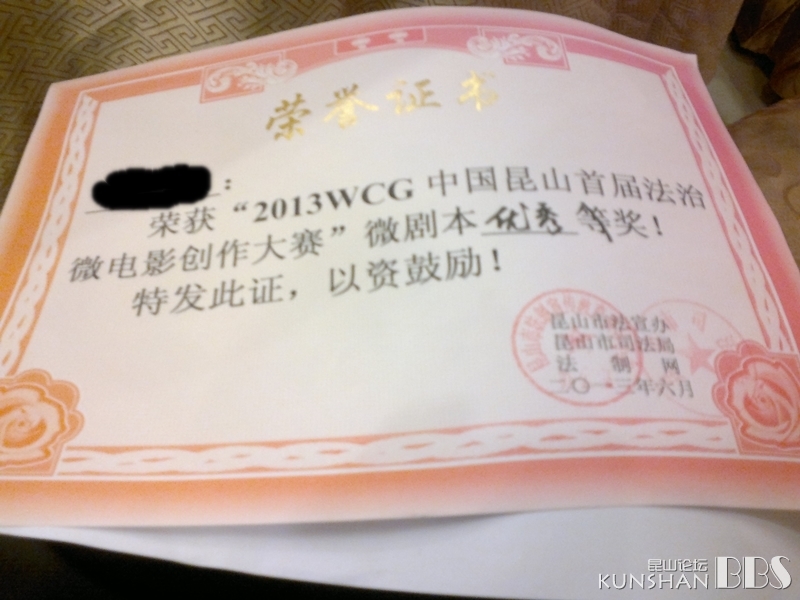 荣誉证书
:
荣获“2013WCG中国昆山首届法治
微电影创作大赛”微剧本优秀等奖！
特发此证，以资鼓励！
昆山市法宣办
昆山市司法局
法制网
二〇一三年六月
昆山论坛
KUNSHAN BBS